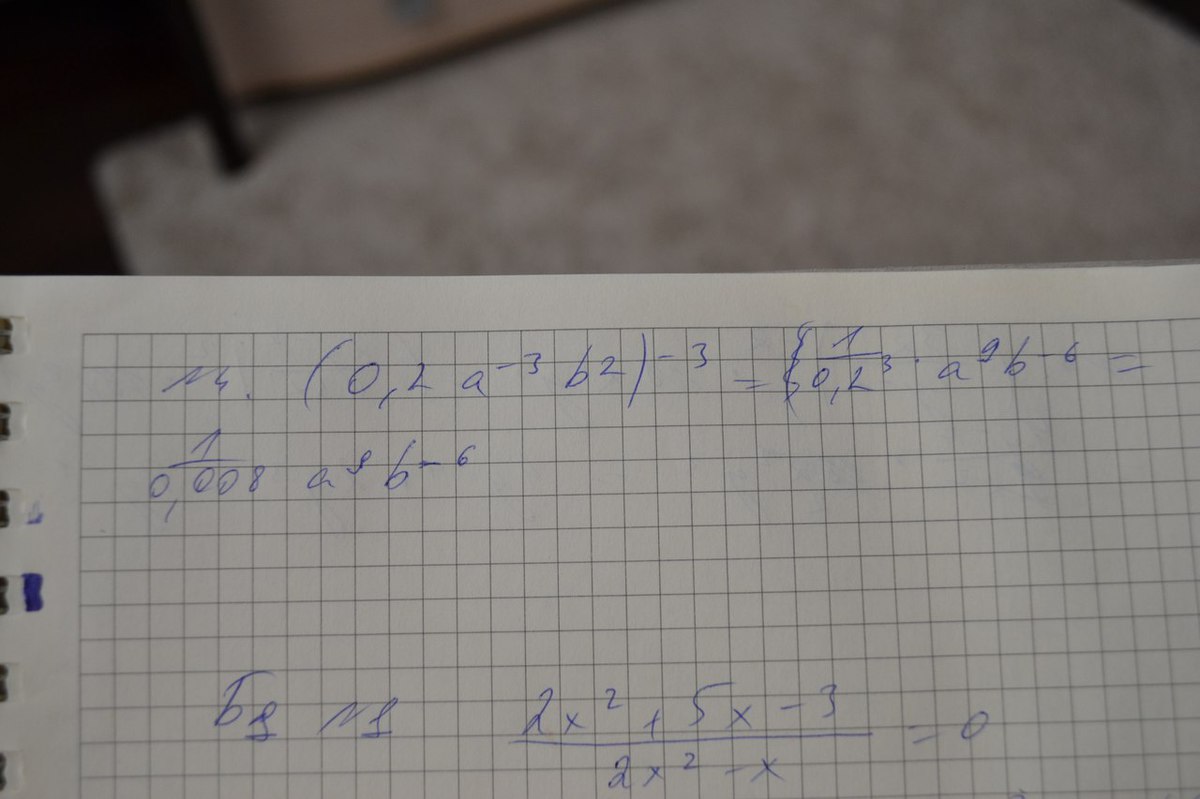 №4. (0,2 a⁻³ b²)⁻³ = 1/0,2³ · a⁹ b⁻⁶ =
1/0,008 a⁹ b⁻⁶
№1 (2x² + 5x - 3)/(2x² - x) = 0